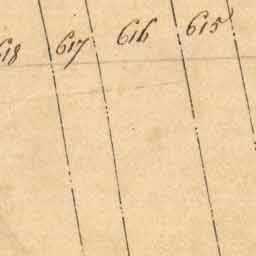 618 617 616 615